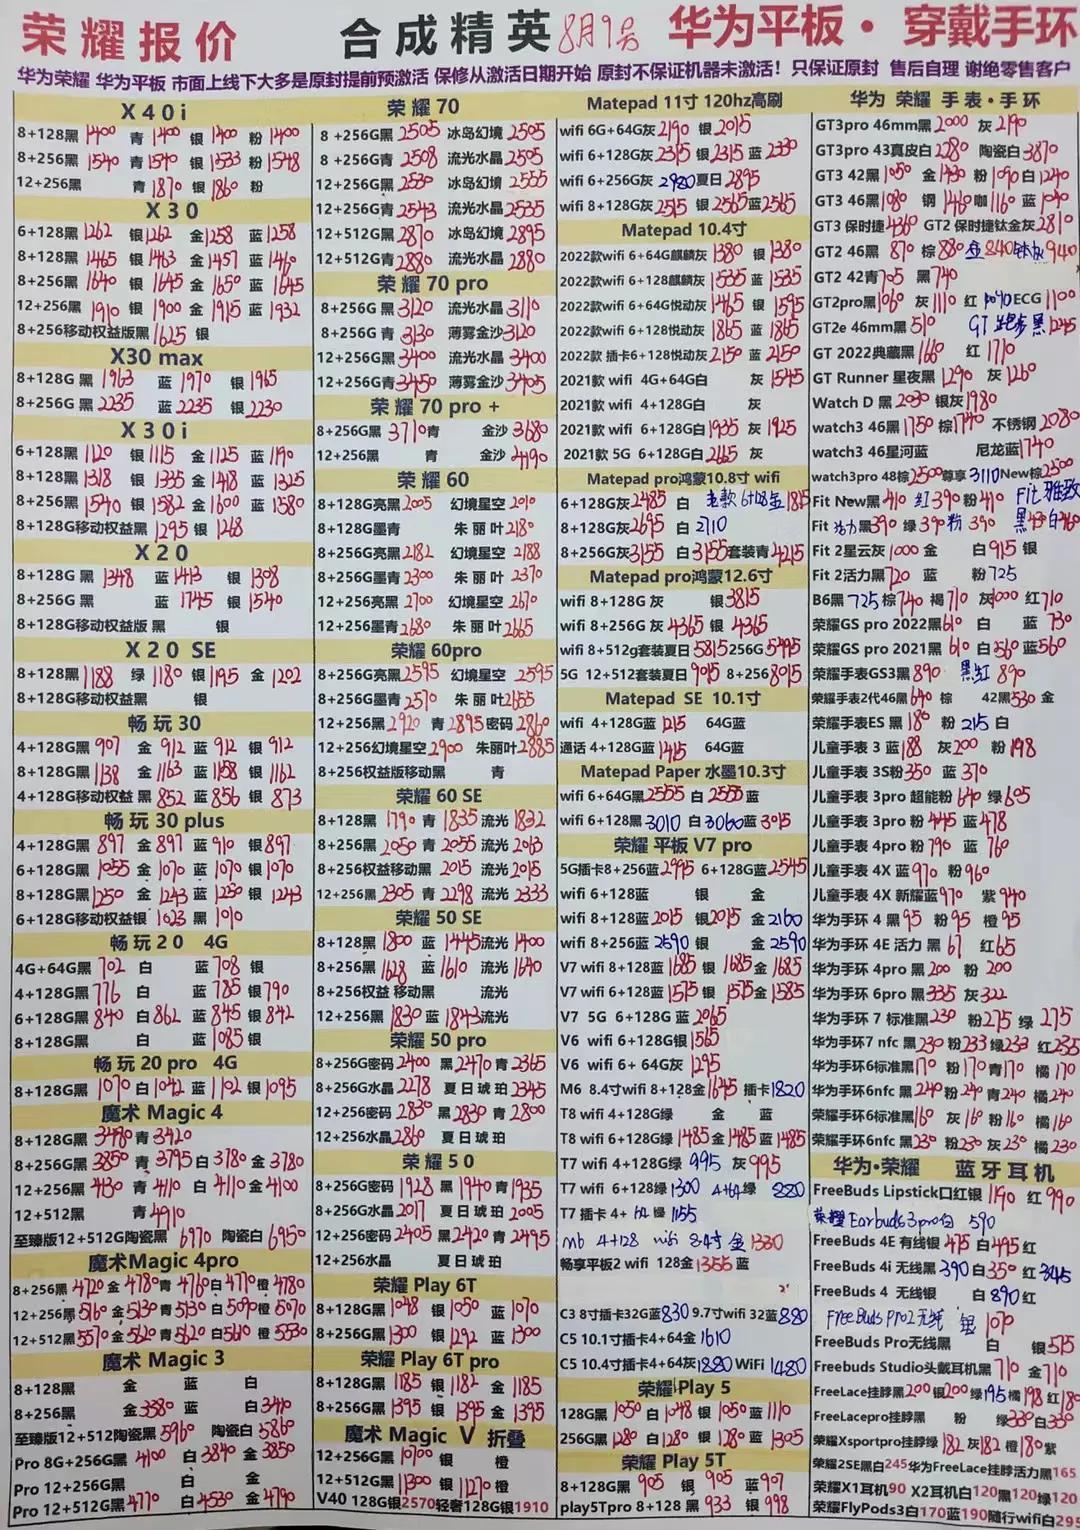 荣耀报价 合成精英 8月9号 华为平板·穿戴手环
华为荣耀 华为平板 市面上线下大多是原封提前预激活 保修从激活日期开始 原封不保证机器未激活！只保证原封 售后自理 谢绝零售客户
X40i
8+128黑1400 青1400 银1400 粉1400
8+256黑1540 青1540 银1533 粉1548
12+256黑 青1870 银1860 粉
X30
6+128黑1262 银1262 金1258 蓝1258
8+128黑1465 银1463 金1457 蓝1460
8+256黑1640 银1645 金1650 蓝1645
12+256黑1910 银1900 金1915 蓝1932
8+256移动权益版黑1625 银
X30 max
8+128G 黑1963 蓝1970 银1965
8+256G 黑2235 蓝2235 银2230
X30i
6+128黑1120 银1115 金1125 蓝1190
8+128黑1318 银1335 金1418 蓝1325
8+256黑1540 银1582 金1600 蓝1580
8+128G移动权益黑1295 银1268
X20
8+128G 黑1348 蓝1413 银1398
8+256G 黑 蓝1745 银1540
8+128G移动权益版 黑 银
X20 SE
8+128黑1188 绿1180 银1195 金1202
8+128G移动权益黑 银
畅玩30
4+128G黑907 金912 蓝912 银912
8+128G黑1138 金1163 蓝1158 银1162
4+128G移动权益 黑852 蓝856 银873
畅玩30 plus
4+128G黑897 金897 蓝910 银897
6+128G黑1055 金1070 蓝1070 银1070
8+128G黑1250 金1243 蓝1230 银1243
6+128G移动权益银1023 黑1010
畅玩20 4G
4G+64G黑702 白 蓝708 银
4+128G黑776 白 蓝785 银790
6+128G黑840 白862 蓝845 银842
8+128G黑 白 蓝1085 银
畅玩20 pro 4G
8+128G黑1070 白1042 蓝1102 银1095
魔术 Magic 4
8+128G黑3490 青3420
8+256G黑3850 青3795 白3780 金3780
12+256黑4130 青4110 白4110 金4100
12+512黑 青4910
至臻版12+512G陶瓷黑6970 陶瓷白6950
魔术Magic 4pro
8+256黑4720 金4780 青4760 白4770 橙4780
12+256黑5160 金5130 青5130 白5090 橙5070
12+512黑5570 金5620 青5620 白5610 橙5530
魔术 Magic 3
8+128黑 金 蓝 白
8+256黑 金3580 蓝 白3440
至臻版12+512陶瓷黑5960 陶瓷白5860
Pro 8G+256G黑4100 白3840 金3850
Pro 12+256G黑 白 金
Pro 12+512G黑4770 白4530 金4790
荣耀70
8+256G黑2505 冰岛幻境2505
8+256G青2508 流光水晶2505
12+256G黑2530 冰岛幻境2555
12+256G青2543 流光水晶2535
12+512G黑2870 冰岛幻境2895
12+512G青2880 流光水晶2880
荣耀70 pro
8+256G黑3120 流光水晶3110
8+256G青3130 薄雾金沙3120
12+256G黑3400 流光水晶3400
12+256G青3450 薄雾金沙3405
荣耀70 pro +
8+256G黑3710 青 金沙3680
12+256黑 青 金沙4190
荣耀60
8+128G亮黑2005 幻境星空2010
8+128G墨青 朱丽叶2180
8+256G亮黑2182 幻境星空2188
8+256G墨青2300 朱丽叶2370
12+256亮黑2700 幻境星空2670
12+256墨青2680 朱丽叶2665
荣耀60pro
8+256G亮黑2595 幻境星空2595
8+256G墨青2570 朱丽叶2655
12+256黑2920 青2895 密码2860
12+256幻境星空2900 朱丽叶2885
8+256权益版移动黑 青
荣耀60 SE
8+128黑1790 青1835 流光1832
8+256黑2050 青2055 流光2063
8+256权益移动黑2015 流光2015
12+256黑2305 青2298 流光2333
荣耀50 SE
8+128黑1800 蓝1445 流光1400
8+256黑1628 蓝1610 流光1640
8+256权益 移动黑 流光
12+256黑1830 蓝1843 流光
荣耀50 pro
8+256G密码2400 黑2470 青2365
8+256G水晶2278 夏日琥珀2345
12+256密码2830 黑2830 青2800
12+256水晶2860 夏日琥珀
荣耀50
8+256G密码1928 黑1940 青1935
8+256G水晶2017 夏日琥珀2005
12+256密码2405 黑2420 青2495
12+256水晶 夏日琥珀
荣耀 Play 6T
8+128G黑1048 银1050 蓝1070
8+256G黑1300 银1292 蓝1300
荣耀 Play 6T pro
8+128G黑1185 银1182 金1185
8+256G黑1395 银1395 金1395
魔术 Magic V 折叠
12+256G黑10700 银 橙
12+512G黑11300 银11270 橙
V40 128G银2570轻奢128G银1910
Matepad 11寸 120hz高刷
wifi 6G+64G灰2190 银2015
wifi 6+128G灰2315 银2315 蓝2330
wifi 6+256G灰2920 夏日2895
wifi 8+128G灰2515 银2565 蓝2565
Matepad 10.4寸
2022款wifi 6+64G麒麟灰1380 银1380
2022款wifi 6+128麒麟灰1535 蓝1535
2022款wifi 6+64G悦动灰1465 银1595
2022款wifi 6+128悦动灰1865 蓝1865
2022款 插卡6+128悦动灰2150 蓝2150
2021款 wifi 4G+64G白 灰1545
2021款 wifi 4+128G白 灰
2021款 wifi 6+128G白1935 灰1925
2021款 5G 6+128G白2165 灰
Matepad pro鸿蒙10.8寸 wifi
6+128G灰2485 白 老款6+128金1815
8+128G灰2695 白2710
8+256G灰3155 白3155套装青4215
Matepad pro鸿蒙12.6寸
wifi 8+128G 灰 银3815
wifi 8+256G 灰4365 银4365
wifi 8+512g套装夏日5815 256G5495
5G 12+512套装夏日9015 8+256 8015
Matepad SE 10.1寸
wifi 4+128G蓝1215 64G蓝
通话 4+128G蓝1415 64G蓝
Matepad Paper 水墨10.3寸
wifi 6+64G黑2555 白2555 蓝
wifi 6+128黑3010 白3060 蓝3015
荣耀 平板 V7 pro
5G插卡8+256蓝2995 6+128G蓝2545
wifi 6+128蓝 银 金
wifi 8+128蓝2015 银2015 金2160
wifi 8+256蓝2590 银 金2590
V7 wifi 8+128蓝1685 银1685 金1685
V7 wifi 6+128蓝1575 银1575 金1585
V7 5G 6+128G 蓝2065
V6 wifi 6+128G银1565
V6 wifi 6+ 64G灰1295
M6 8.4寸wifi 8+128金1645 插卡1820
T8 wifi 4+128G绿 金 蓝
T8 wifi 6+128G绿1485 金1485 蓝1485
T7 wifi 4+128G绿995 灰995
T7 wifi 6+128绿1300 4+64 绿 880
T7 插卡 4+ 64 绿 1155
M6 4+128 wifi 8.4寸 金1330
畅享平板2 wifi 128金1355 蓝
C3 8寸插卡32G蓝830 9.7寸wifi 32蓝880
C5 10.1寸插卡4+64金1610
C5 10.4寸插卡4+64灰1880 WiFi 1480
荣耀 Play 5
128G黑1050 白1048 银1050 蓝1110
256G黑1280 白1280 银1280 蓝1305
荣耀 Play 5T
8+128G黑905 银905 蓝907
play5Tpro 8+128 黑933 银998
华为 荣耀 手表·手环
GT3pro 46mm黑2000 灰2190
GT3pro 43真皮白2280 陶瓷白3870
GT3 42黑1050 金1430 粉1090 白1240
GT3 46黑1080 钢1460 咖1160 蓝1040
GT3 保时捷4360 GT2 保时捷钛金灰2810
GT2 46黑870 棕880 金840 钛灰940
GT2 42青705 黑740
GT2pro黑1060 灰1110 红1040 ECG 1100
GT2e 46mm黑510 GT 跑步 黑1245
GT 2022典藏黑1660 红1710
GT Runner 星夜黑1290 灰1260
Watch D 黑2030 银灰1980
watch3 46黑1750 棕1740 不锈钢2080
watch3 46星河蓝 尼龙蓝1740
watch3pro 48棕2500尊享3110New棕2500
Fit New黑410 红390 粉410 Fit 雅致
Fit 活力黑390 绿390 粉390 黑430 白460
Fit 2星云灰1000 金 白915 银
Fit 2活力黑720 蓝 粉725
B6黑725 棕740 褐710 灰1000 红710
荣耀GS pro 2022黑610 白 蓝730
荣耀GS pro 2021黑610 白560 蓝560
荣耀手表GS3黑890 黑红890
荣耀手表2代46黑640 棕 42黑530 金
荣耀手表ES 黑180 粉215 白
儿童手表 3 蓝188 灰200 粉198
儿童手表 3S粉350 蓝370
儿童手表 3pro 超能粉640 绿605
儿童手表 3pro 粉445 蓝478
儿童手表 4pro 粉790 蓝760
儿童手表 4X 蓝970 粉960
儿童手表 4X 新耀蓝970 紫940
华为手环 4 黑95 粉95 橙95
华为手环 4E 活力 黑67 红65
华为手环 4pro 黑200 粉200
华为手环 6pro 黑335 灰322
华为手环 7 标准黑230 粉275 绿275
华为手环7 nfc 黑230 粉233 绿233 红235
华为手环6标准黑170 粉170 青170 橘170
华为手环6nfc 黑240 粉240 青240 橘240
荣耀手环6标准黑160 灰160 粉160 橘160
荣耀手环6nfc 黑230 粉230 灰230 橘230
华为·荣耀 蓝牙耳机
FreeBuds Lipstick口红银1190 红990
荣耀Earbuds3pro白 590
FreeBuds 4E 有线银475 白495 红
FreeBuds 4i 无线黑390 白350 红345
FreeBuds 4 无线银 白890 红
FreeBuds Pro2无线 银1070
FreeBuds Pro无线黑 白 银575
Freebuds Studio头戴耳机黑710 金710
FreeLace挂脖黑200 银200 绿195 橘198 红180
FreeLacepro挂脖黑 粉 绿330 白330
荣耀Xsportpro挂脖绿182 灰182 橙180 紫
荣耀2SE黑白245华为FreeLace挂脖活力黑165
荣耀X1耳机90 X2耳机白120黑120绿120
荣耀FlyPods3白170蓝190随行wifi白295